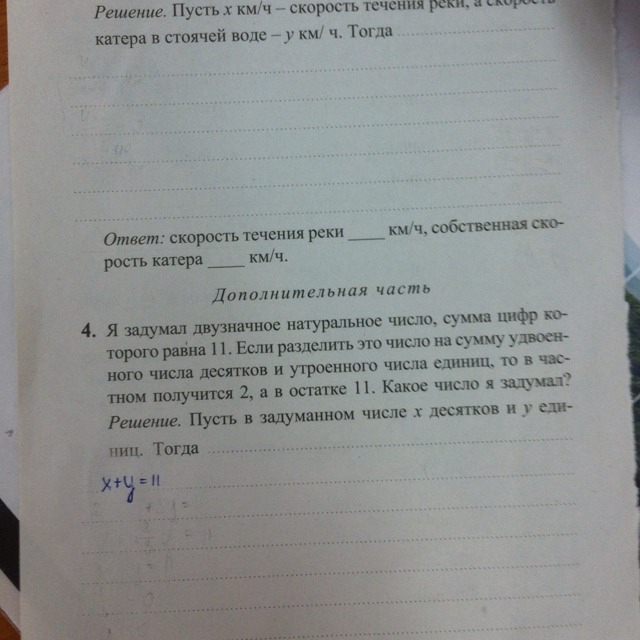 Решение. Пусть x км/ч – скорость течения реки, а скорость
катера в стоячей воде – y км/ ч. Тогда
Ответ: скорость течения реки ____ км/ч, собственная ско-
рость катера ____ км/ч.
Дополнительная часть
4. Я задумал двузначное натуральное число, сумма цифр ко-
торого равна 11. Если разделить это число на сумму удвоен-
ного числа десятков и утроенного числа единиц, то в час-
тном получится 2, а в остатке 11. Какое число я задумал?
Решение. Пусть в задуманном числе x десятков и y еди-
ниц. Тогда
x+y=11